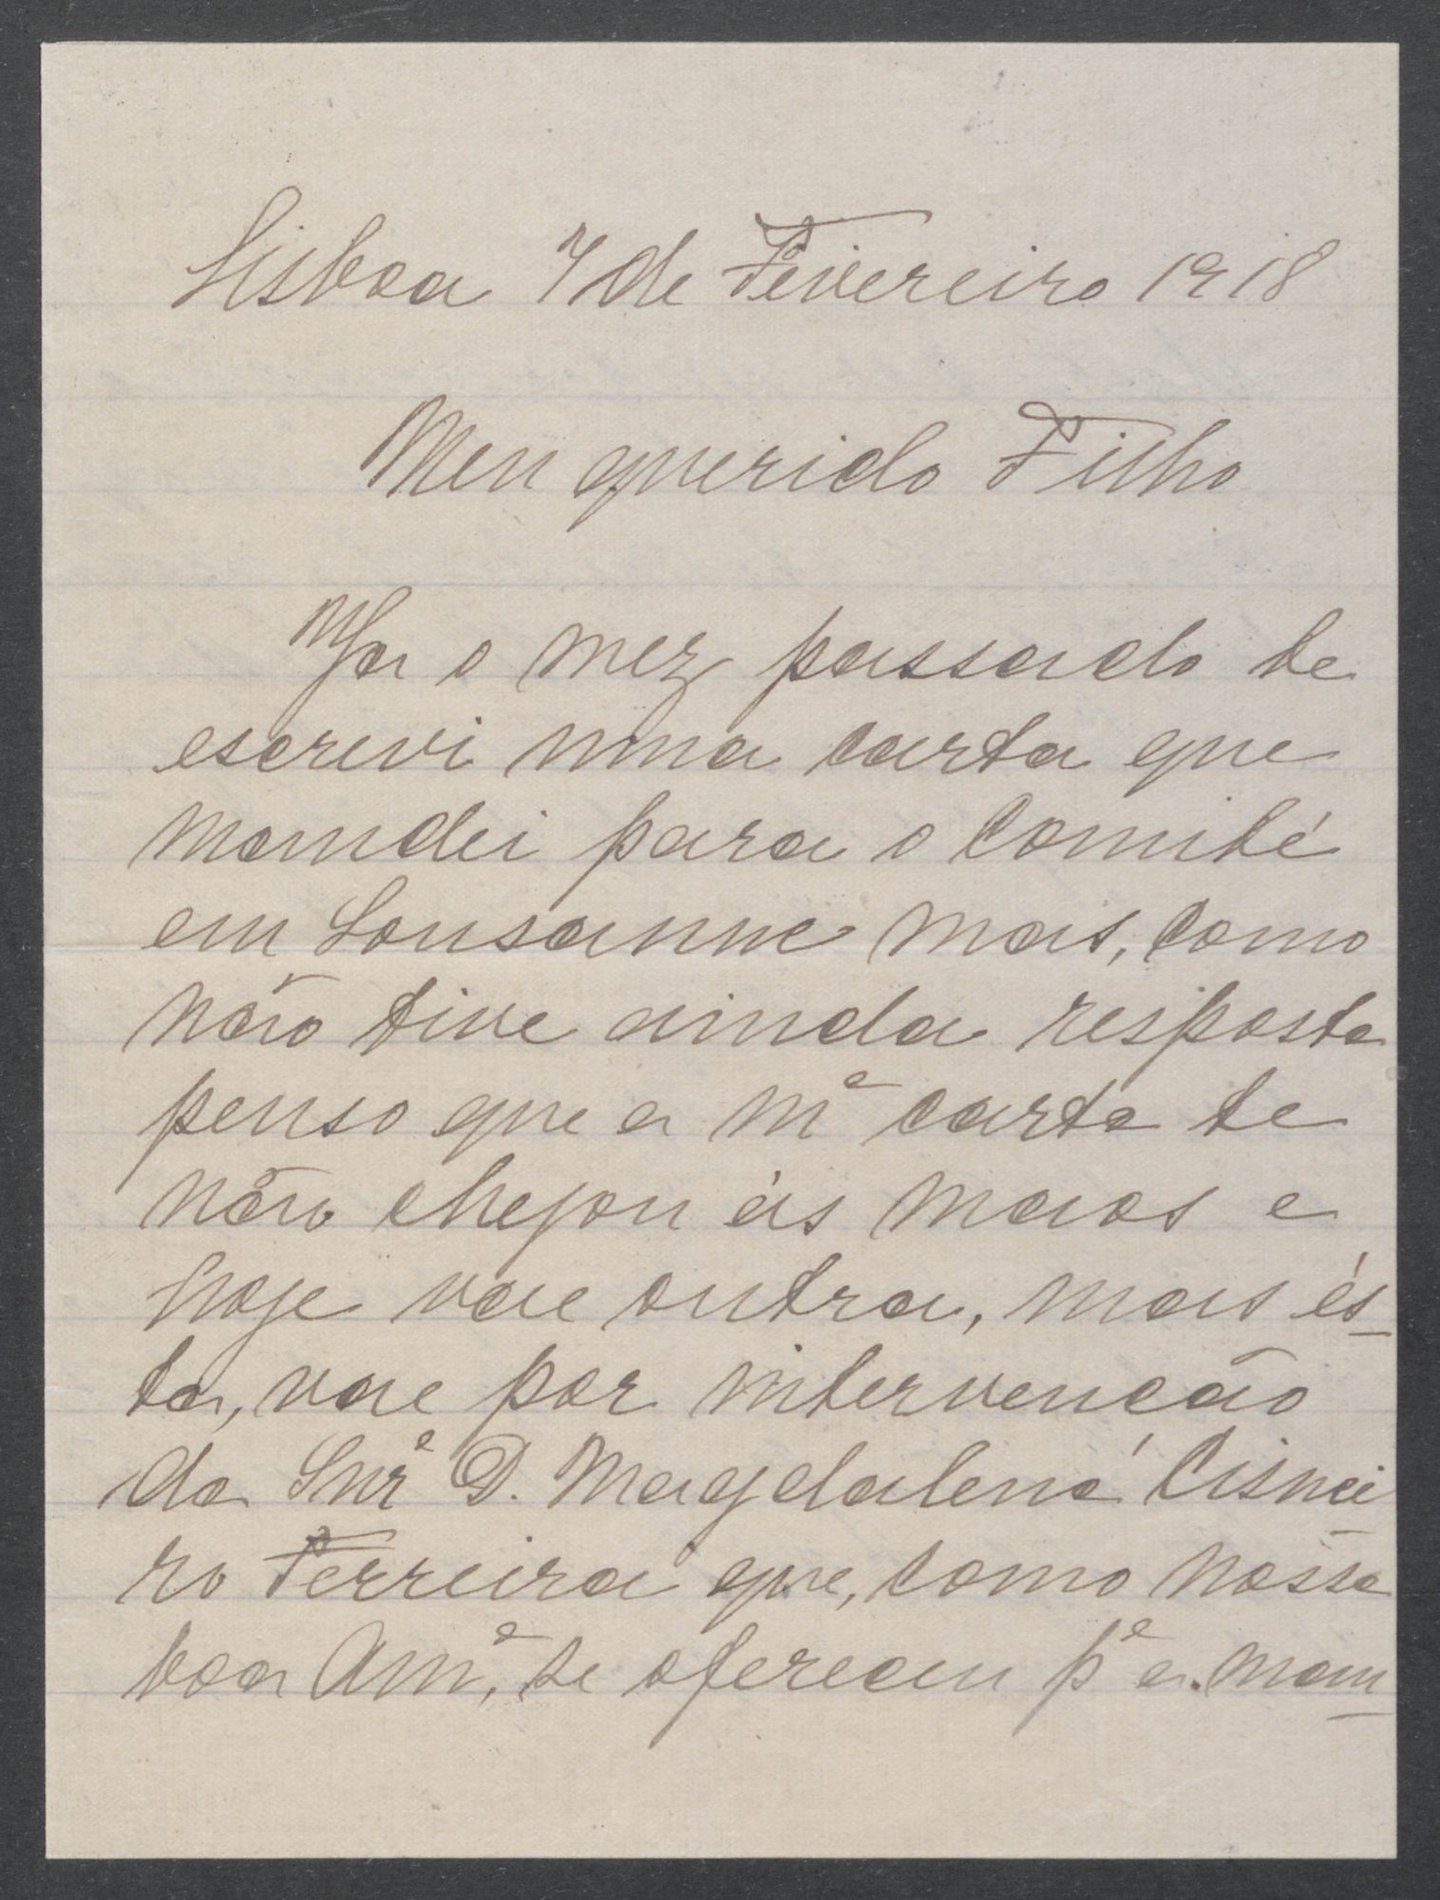 Lisboa 7 de Fevereiro 1918
Meu querido Filho
Ja o mez passado te
escrevi uma carta que
mandei para o Comité
em Lousanne mas, como
não tive ainda resposta
penso que a mª carta te
não chegou ás maos e
hoje vae outra, mas és-
ta, vae por intervencão
da Snrª D. Magdalena Cisnei
ro Ferreira que, como nossa
boa Amª, se ofereceu pª a man